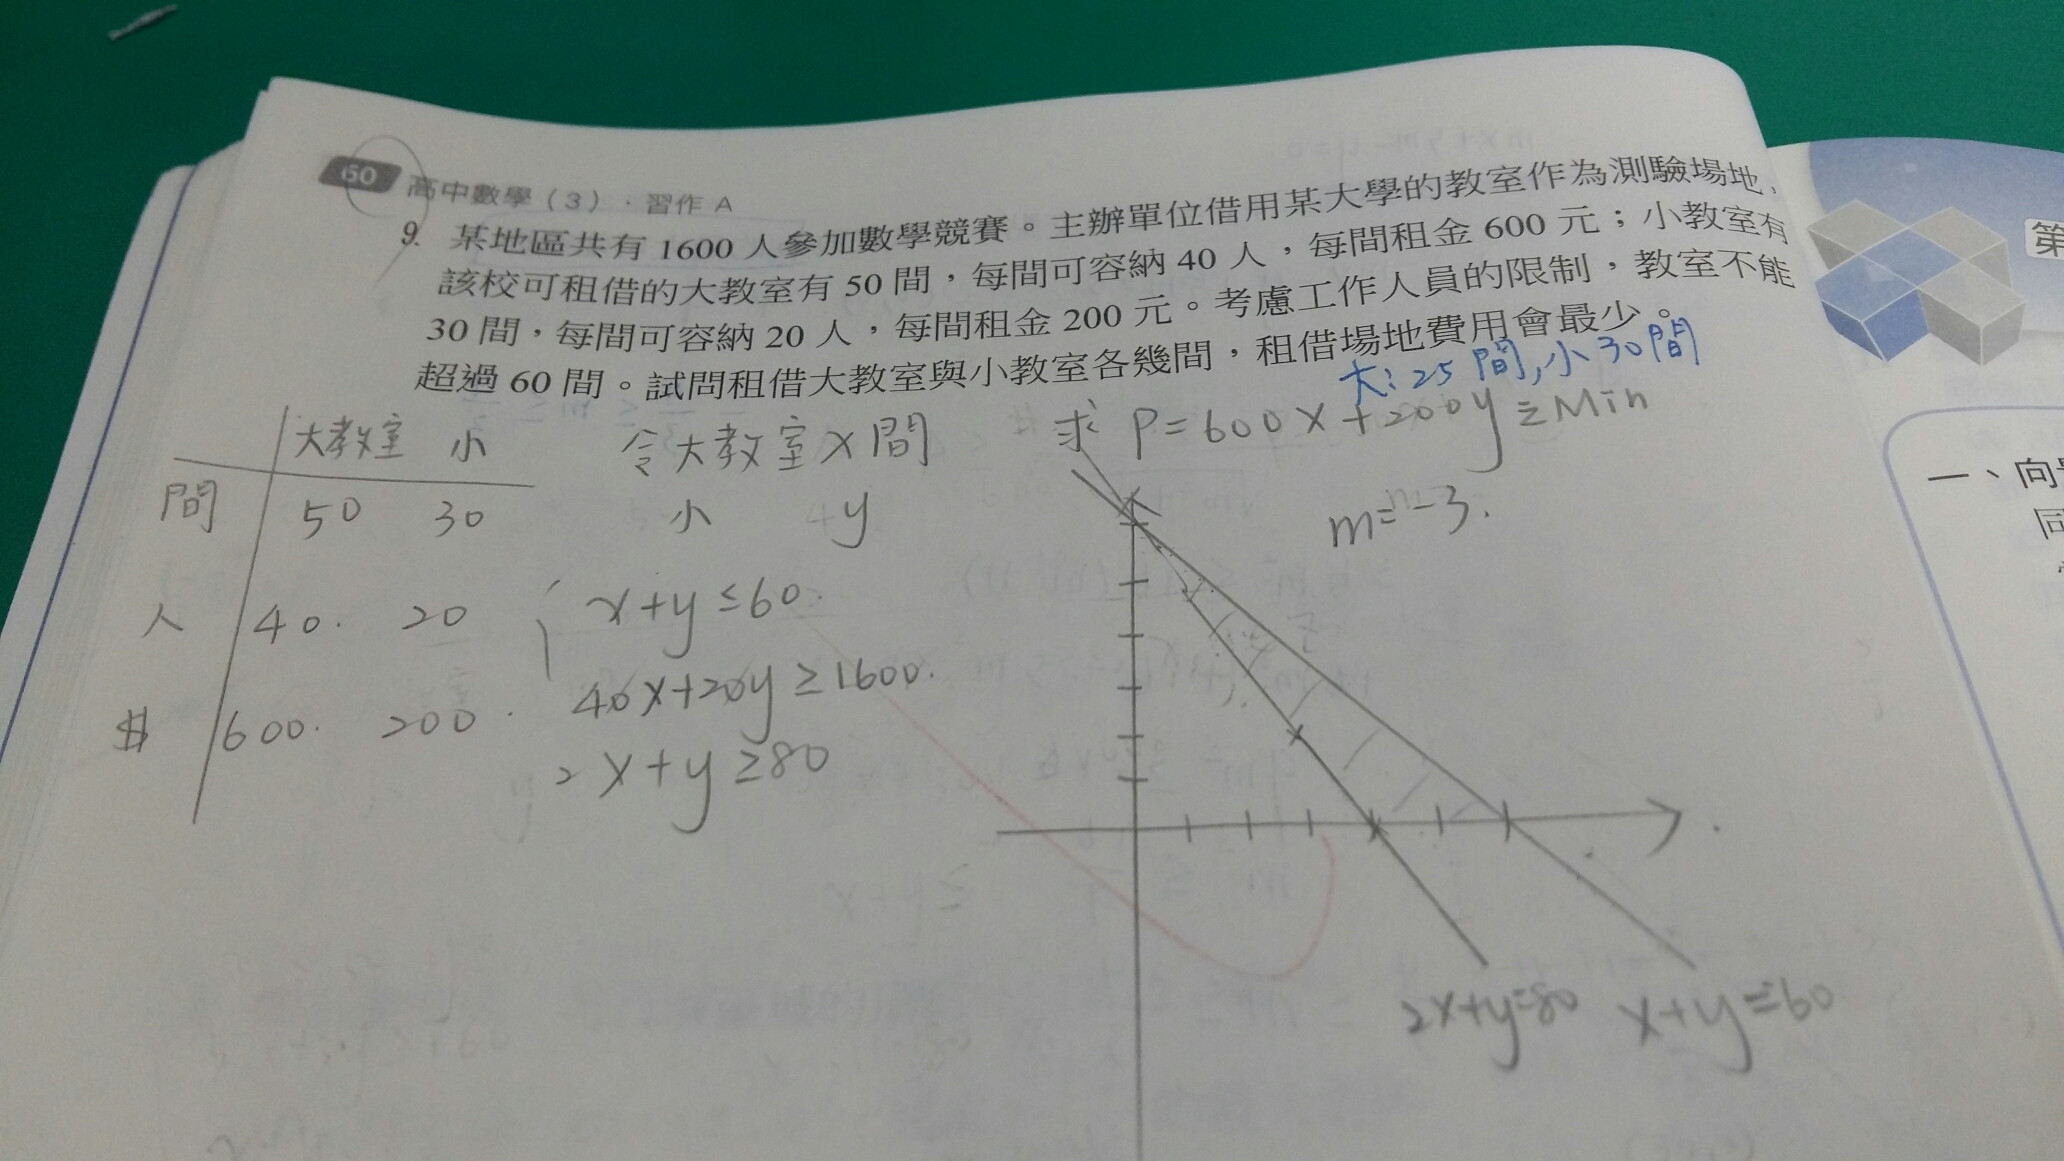 60 高中數學（3）．習作 A
9. 某地區共有 1600 人參加數學競賽。主辦單位借用某大學的教室作為測驗場地，
該校可租借的大教室有 50 間，每間可容納 40 人，每間租金 600 元；小教室有
30 間，每間可容納 20 人，每間租金 200 元。考慮工作人員的限制，教室不能
超過 60 間。試問租借大教室與小教室各幾間，租借場地費用會最少。
大：25 間，小 30 間
大教室 小
間 50 30
人 40. 20
$ 600. 200.
令大教室 x 間
小 y
x+y≤60.
40x+20y≥1600.
2x+y≥80
求 P=600x+200y Min
m=-3.
2x+y=80
x+y=60
第
一、向
同